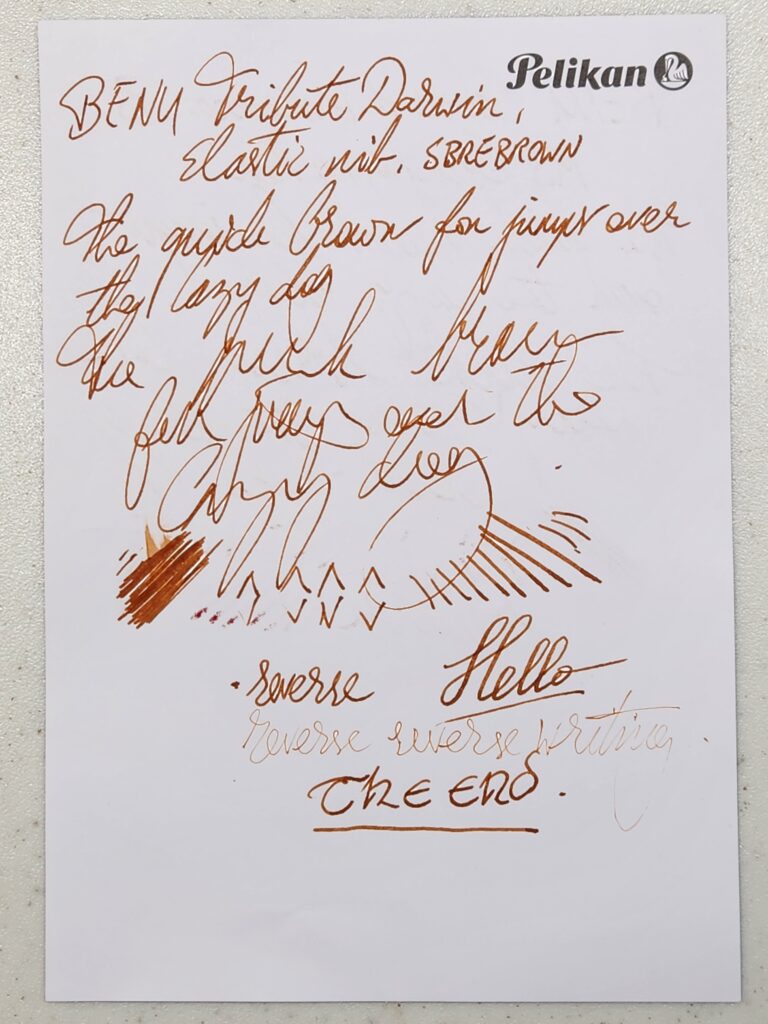 Pelikan
BENU Tribute Darwin,
Elastic nib, SBREBROWN
The quick brown fox jumps over
the lazy dog
The quick brown
fox jumps over the
lazy dog
reverse Hello
reverse reverse writing
THE END.